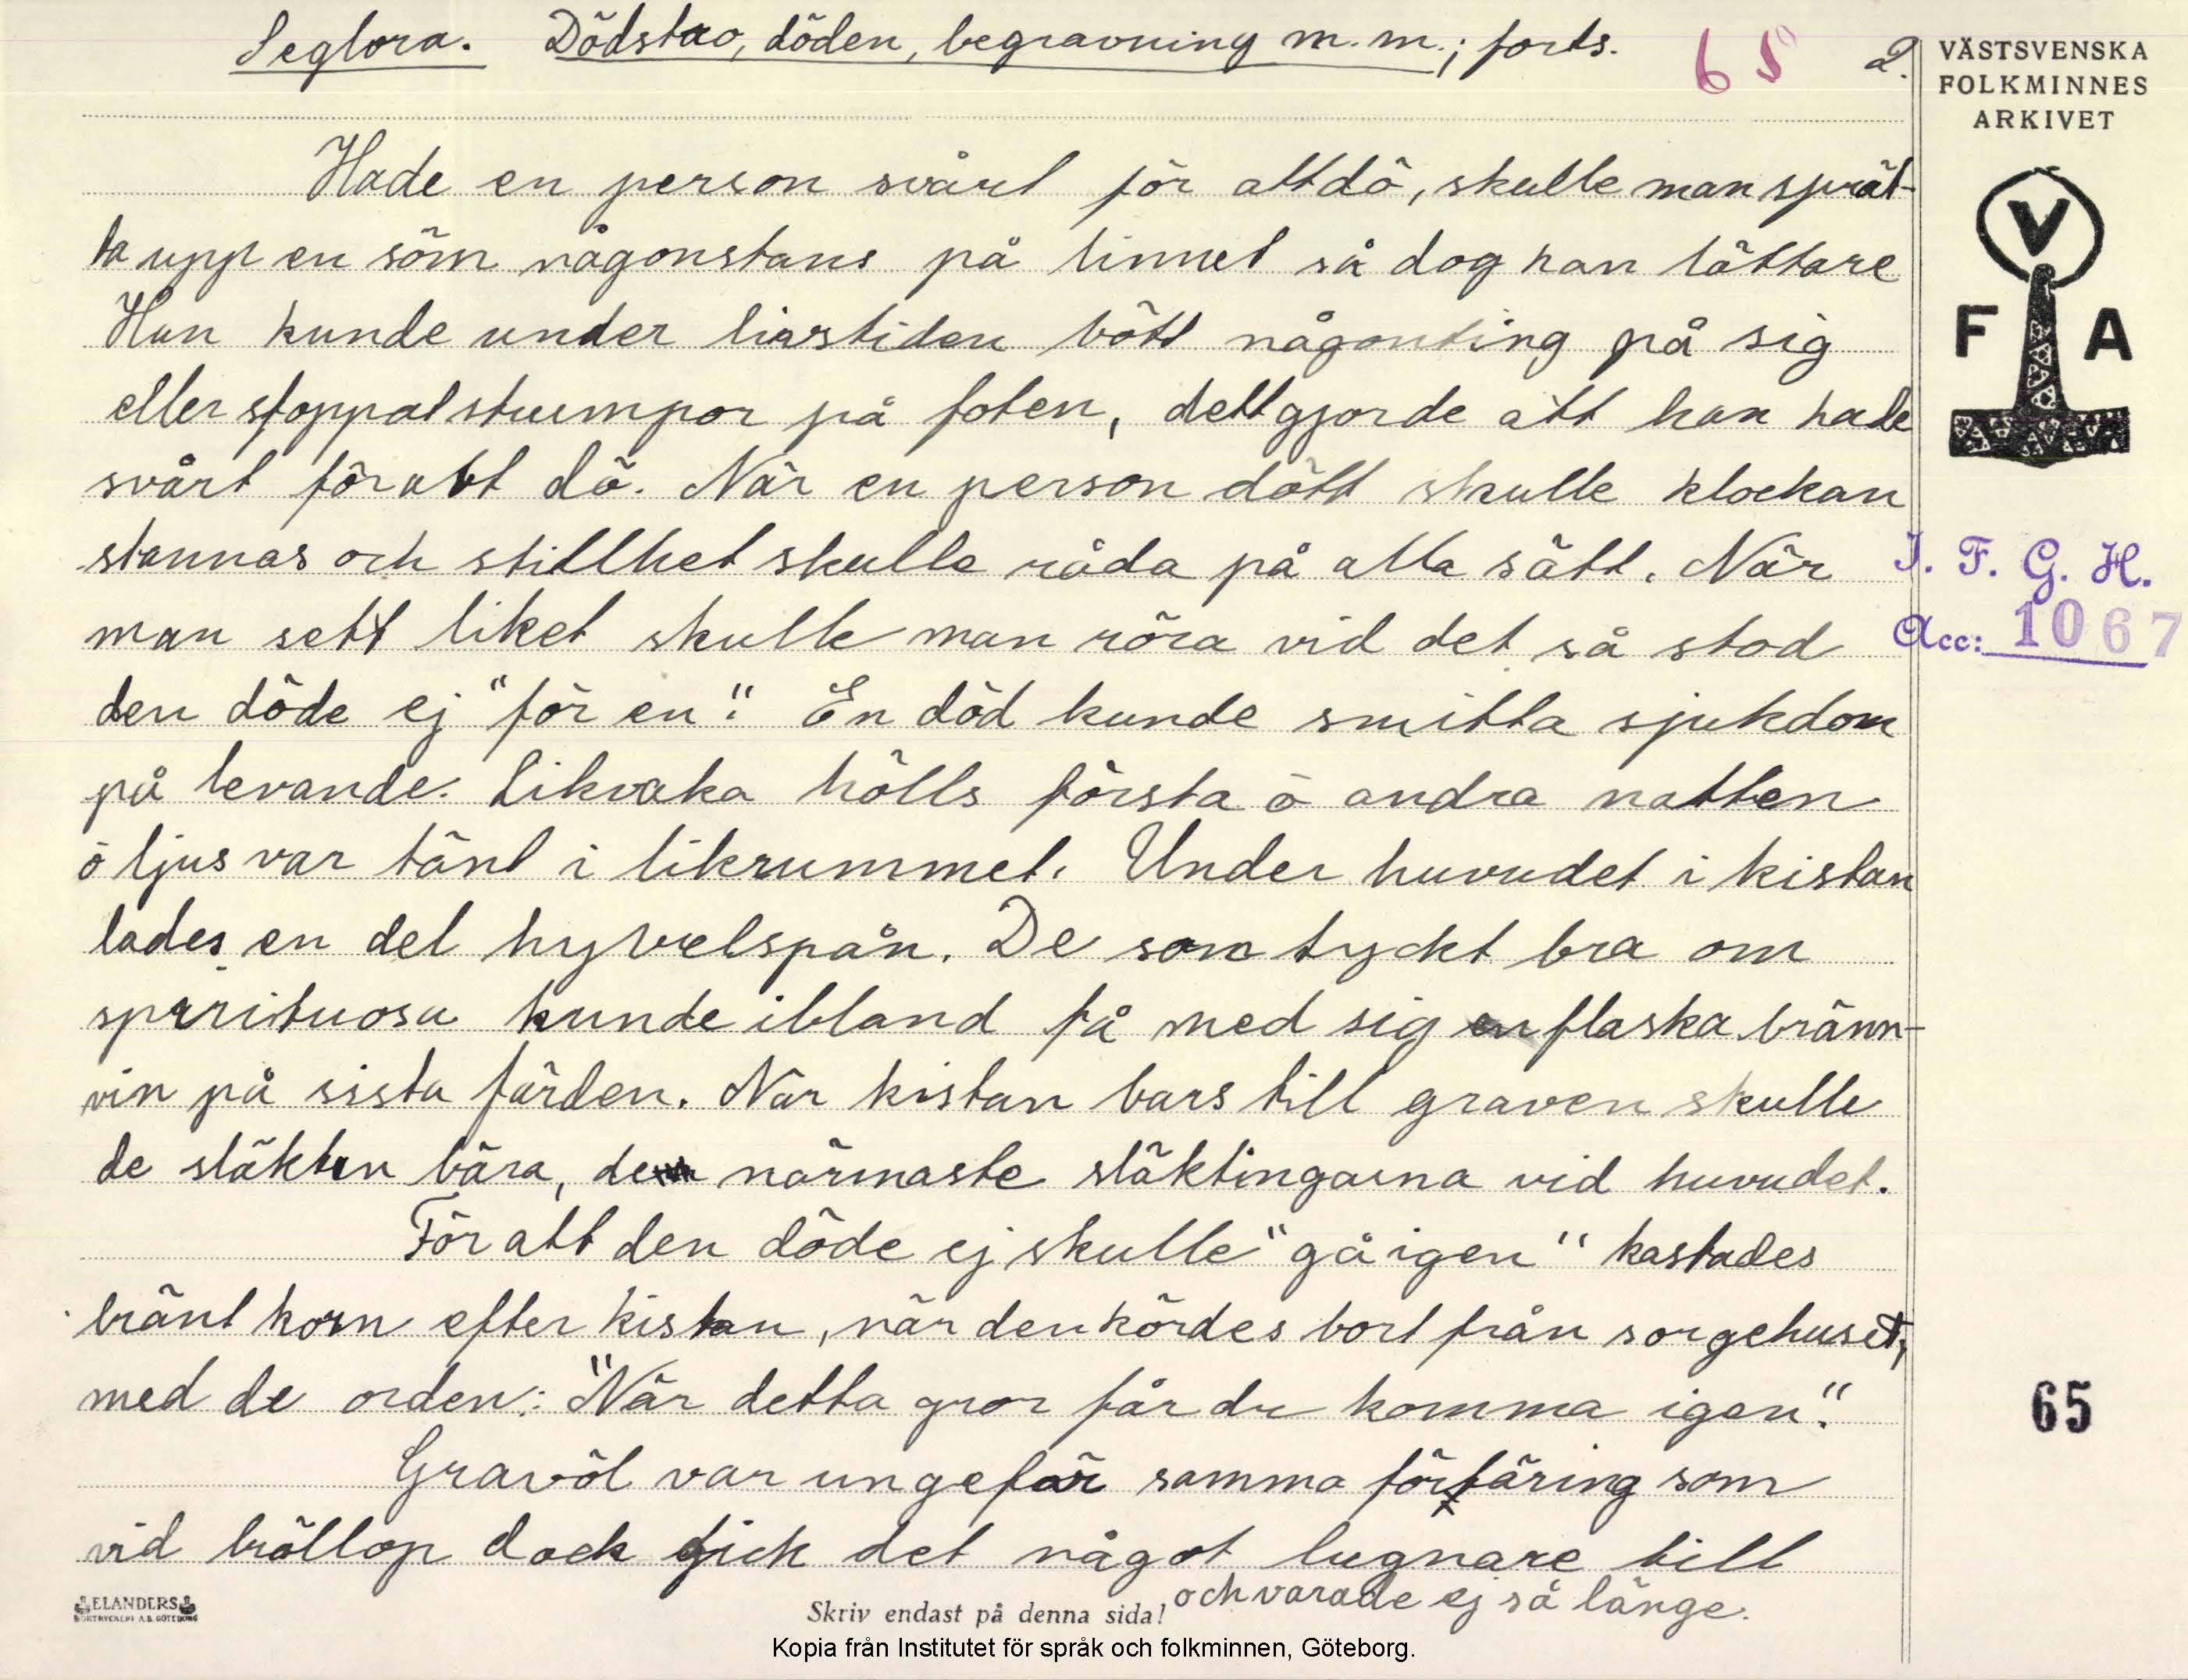 Seglora. Dödstro, döden, begravning m.m.; forts. 65 2.
VÄSTSVENSKA
FOLKMINNES
ARKIVET
V
F A
Hade en person svårt för att dö, skulle man sprät-
ta upp en söm någonstans på linnet så dog han lättare
Han kunde under livstiden bött någonting på sig
eller stoppat strumpor på foten, dett gjorde att han hade
svårt för att dö. När en person dött skulle klockan
stannas och stillhet skulle råda på alla sätt. När
I. F. G. H.
man sett liket skulle man röra vid det så stod
Acc: 1067
den döde ej "för en". En död kunde smitta sjukdom
på levande. Likvaka hölls första ö andra natten
ö ljus var tänt i likrummet. Under huvudet i kistan
lades en del hyvelspån. De som tyckt bra om
sprirituosa kunde ibland få med sig en flaska bränn-
vin på sista färden. När kistan bars till graven skulle
de släkten bära, de närmaste släktingarna vid huvudet.
För att den döde ej skulle "gå igen" kastades
bränt korn efter kistan, när den kördes bort från sorgehuset,
med de orden: "När detta gror får du komma igen".
65
Gravöl var ungefär samma förtäring som
vid bröllop dock gick det något lugnare till
och varade ej så länge.
ELANDERS
BOKTRYCKERI A.B. GÖTEBORG
Skriv endast på denna sida!
Kopia från Institutet för språk och folkminnen, Göteborg.